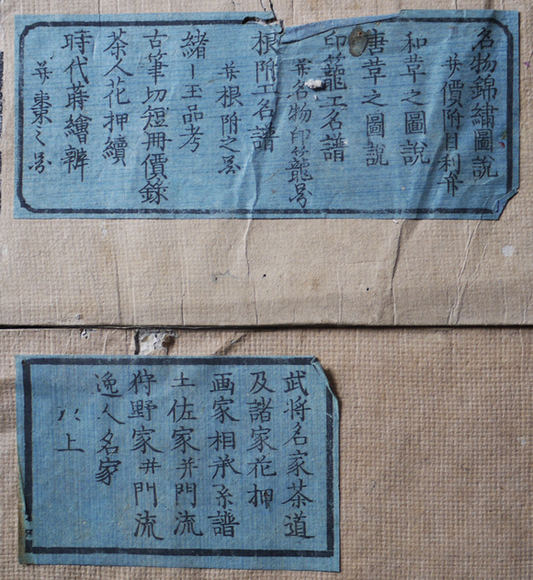 名物錦繡圖說
并價附目利并
和草之圖說
唐草之圖說
印籠工名譜
并名物印籠号
根附工名譜
并根附之号
緒〆玉品考
古筆切短冊價錄
茶人花押續
時代蒔繪辨
并棗之号
武将名家茶道
及諸家花押
画家相承系譜
土佐家并門流
狩野家并門流
逸人名家
以上